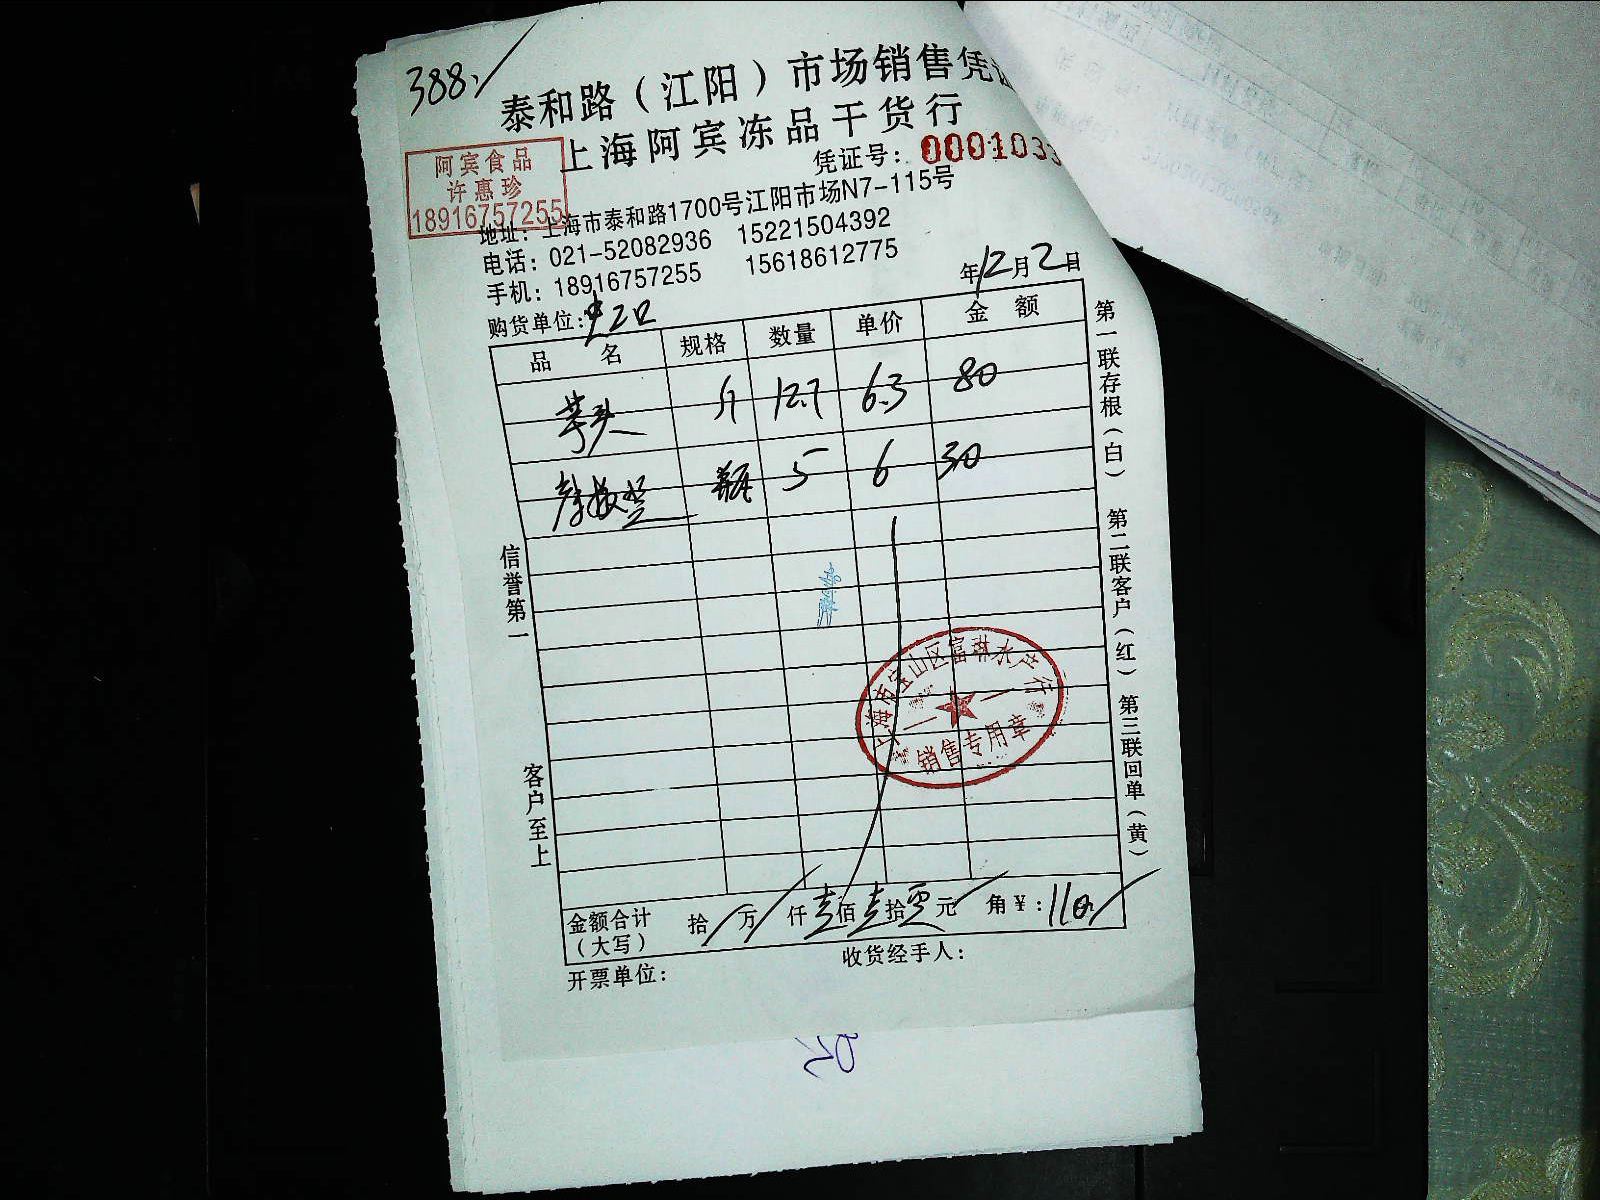 388.
泰和路（江阳）市场销售凭
上海阿宾冻品干货行
阿宾食品
许惠珍
18916757255
凭证号：0001033
地址：上海市泰和路1700号江阳市场N7-115号
电话：021-52082936 15221504392
手机：18916757255 15618612775
年12月2日
购货单位：
品名 规格 数量 单价 金额
芋头 斤 12.7 6.3 80
瓶 5 6 30
信誉第一
客户至上
第一联存根（白） 第二联客户（红） 第三联回单（黄）
上海市宝山区富琳水产行
销售专用章
金额合计（大写） 拾 万 仟 壹佰 壹拾 零元 角 ¥：110
开票单位： 收货经手人：